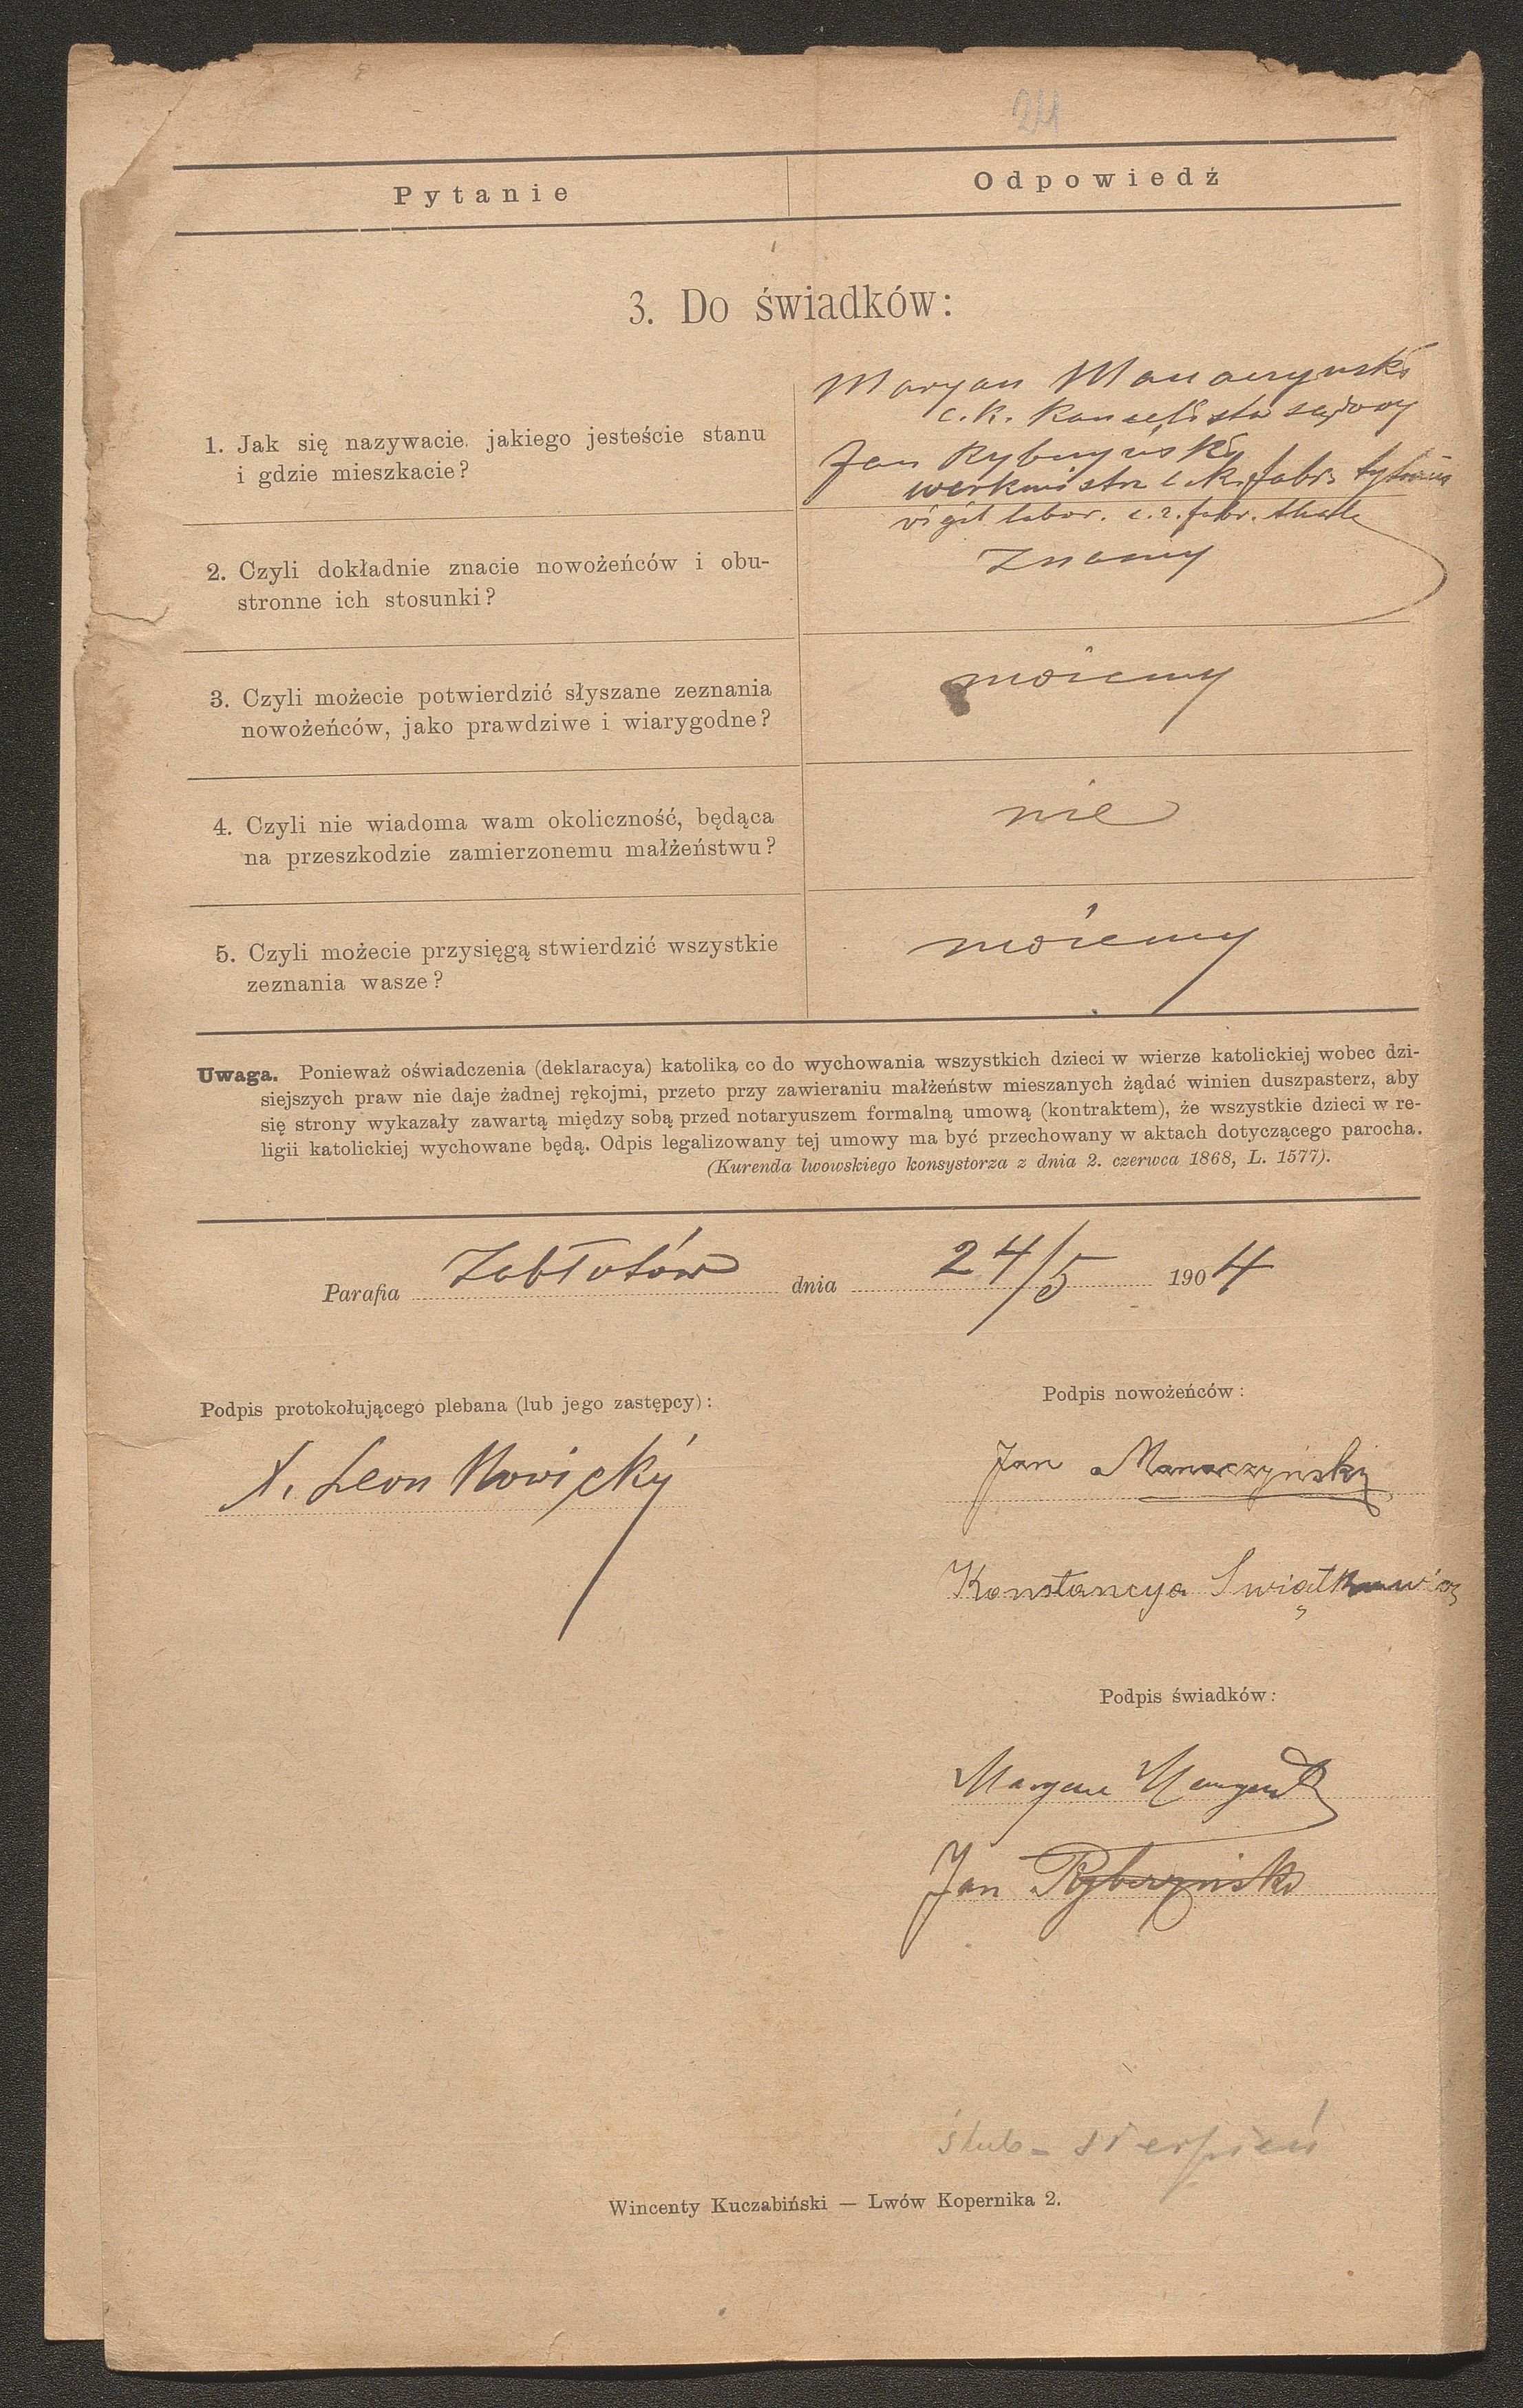 24
Pytanie
Odpowiedź
3. Do świadków:
1. Jak się nazywacie, jakiego jesteście stanu
i gdzie mieszkacie?
Maryan Manaczyński
c.k. kancelista sądowy
Jan Rybczyński
werkmistrz c.k. fabr. tytoniu
vigil labor. c.r. fabr.
2. Czyli dokładnie znacie nowożeńców i obu-
stronne ich stosunki?
znamy
3. Czyli możecie potwierdzić słyszane zeznania
nowożeńców, jako prawdziwe i wiarygodne?
możemy
4. Czyli nie wiadoma wam okoliczność, będąca
na przeszkodzie zamierzonemu małżeństwu?
nie
5. Czyli możecie przysięgą stwierdzić wszystkie
zeznania wasze?
możemy
Uwaga. Ponieważ oświadczenia (deklaracya) katolika co do wychowania wszystkich dzieci w wierze katolickiej wobec dzi-
siejszych praw nie daje żadnej rękojmi, przeto przy zawieraniu małżeństw mieszanych żądać winien duszpasterz, aby
się strony wykazały zawartą między sobą przed notaryuszem formalną umową (kontraktem), że wszystkie dzieci w re-
ligii katolickiej wychowane będą. Odpis legalizowany tej umowy ma być przechowany w aktach dotyczącego parocha.
(Kurenda lwowskiego konsystorza z dnia 2. czerwca 1868, L. 1577).
Parafia Zabłotów dnia 24/5 1904
Podpis protokołującego plebana (lub jego zastępcy):
Podpis nowożeńców:
X. Leon Nowicky
Jan Manaczyński
Konstancya Swiątkowicz
Podpis świadków:
Maryan
Jan Rybczyński
ślub - sierpień
Wincenty Kuczabiński — Lwów Kopernika 2.